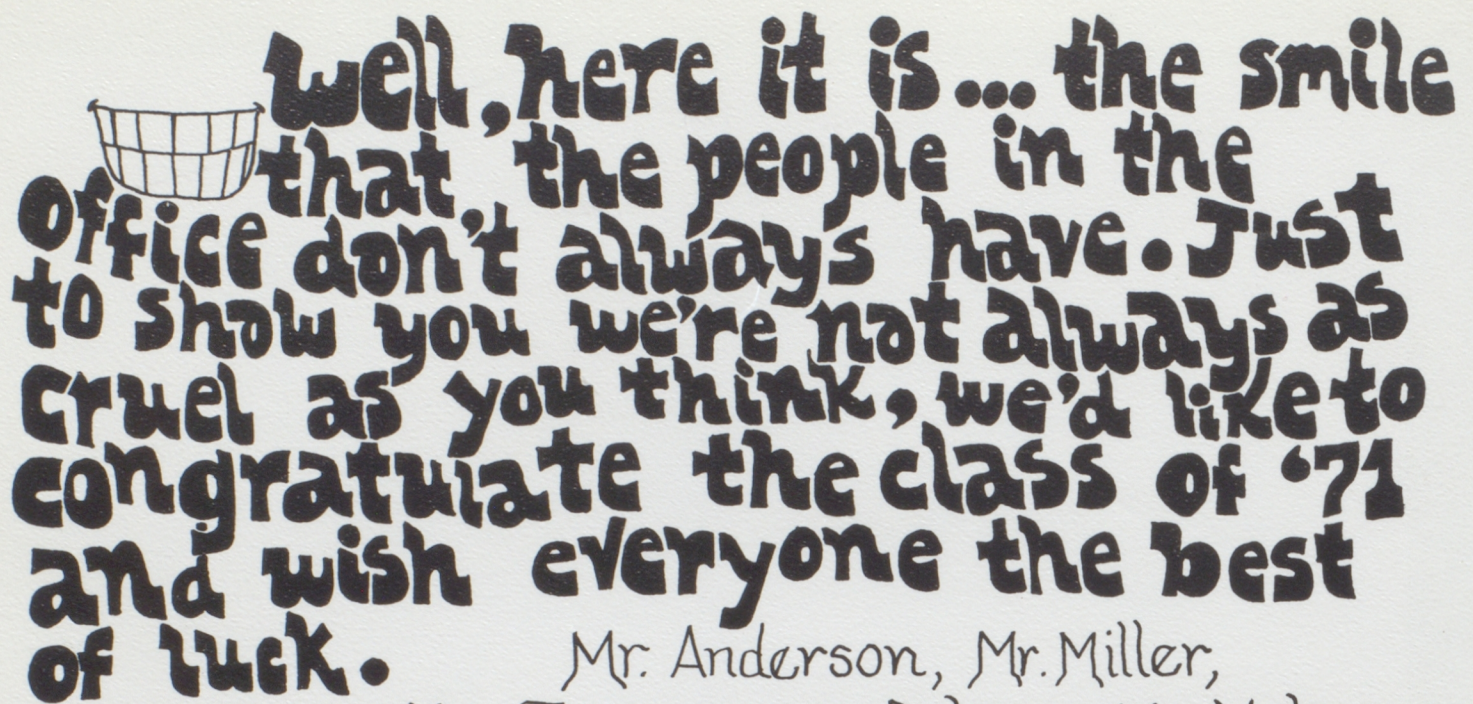 Well, here it is... the smile
that, the people in the
office don't always have. Just
to show you we're not always as
cruel as you think, we'd like to
congratulate the class of '71
and wish everyone the best
of luck.
Mr. Anderson, Mr. Miller,